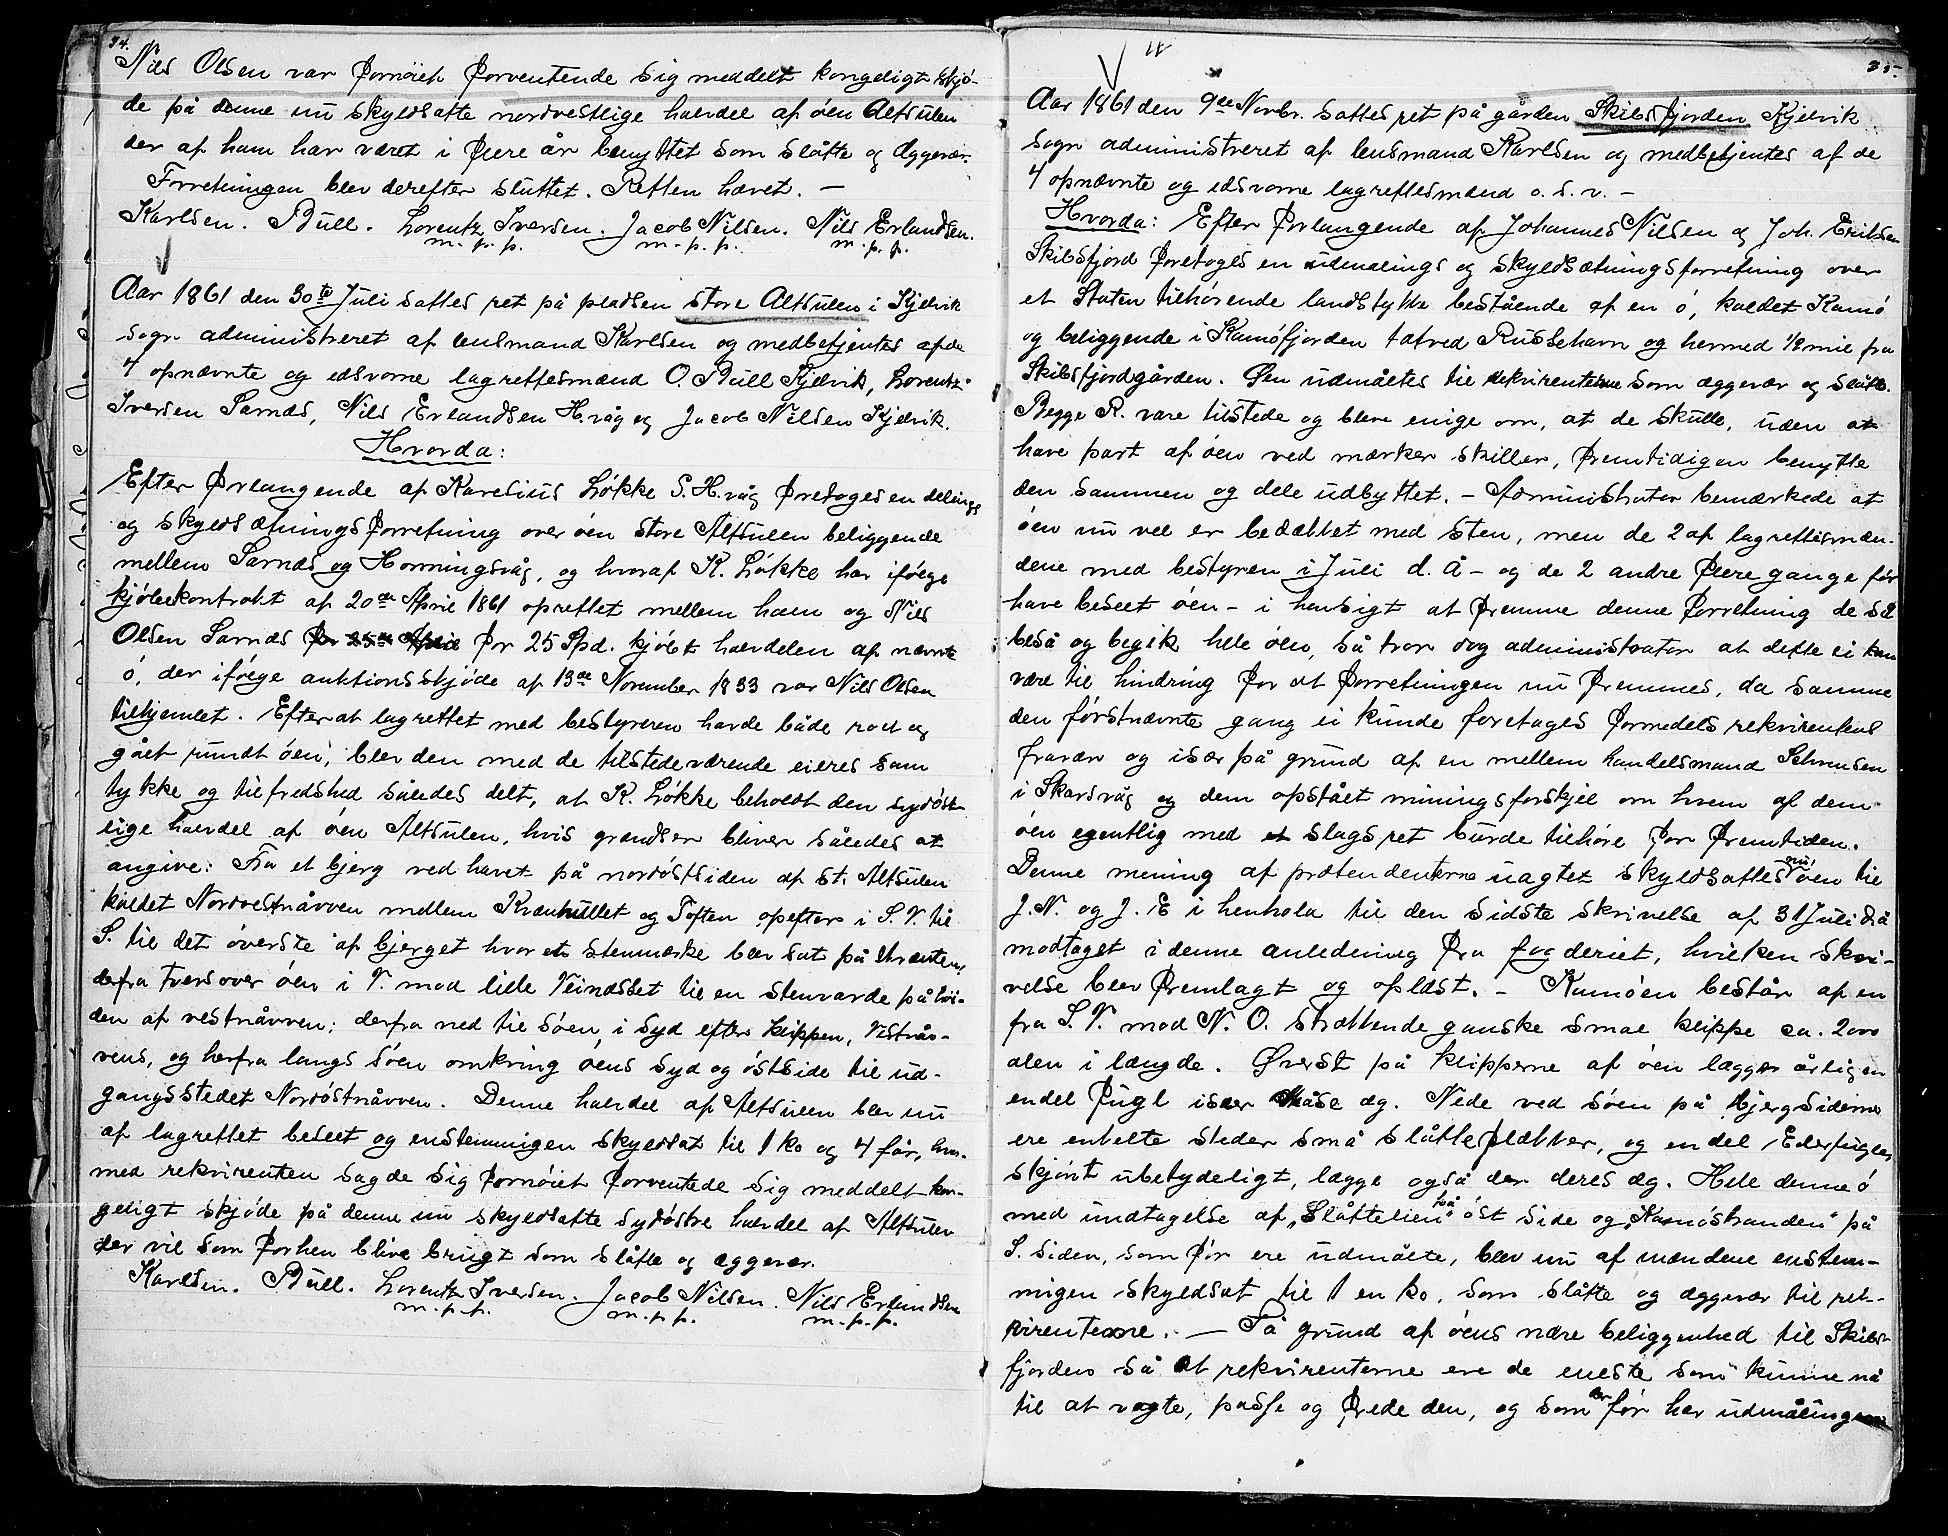 34.
Nils Olsen var fornöiet forventende sig meddelt kongeligt skjö-
de på denne nu skyldsatte nordvestlige halvdel af öen Altsulen
der af ham har været i flere år benyttet som slåtte og æggevær.
Forretningen blev derefter sluttet. Retten hævet. –
Karlsen. Bull. Lorentz Iversen. Jacob Nilsen. Nils Erlandsen.
m. p. p. m. p. p. m. p. p.
Aar 1861 den 30te Juli sattes ret på pladsen store Altsulen i Kjelvik
sogn administreret af lensmand Karlsen og medbetjentes af de
4 opnævnte og edsvorne lagrettesmænd O. Bull Kjelvik, Lorentz
Iversen Sarnæs, Nils Erlandsen H.våg og Jacob Nilsen Kjelvik.
Hvorda:
Efter forlangende af Karelius Lökke S. H.våg foretoges en delings
og skyldsætningsforretning over öen store Altsulen beliggende
mellem Sarnæs og Honningsvåg, og hvoraf K. Lökke har ifölge
kjöbekontrakt af 20de April 1861 oprettet mellem ham og Nils
Olsen Sarnæs for 25de April for 25 Spd. kjöbt halvdelen af nævnte
ö, der ifölge auktionsskjöde af 13de November 1833 var Nils Olsen
tilhjemlet. Efterat lagrettet med bestyreren havde både roet og
gået rundt öen, blev den med de tilstedeværende eieres sam
tykke og tilfredshed således delt, at K. Lökke beholdt den sydöst-
lige halvdel af öen Altsulen, hvis grændser bliver således at
angive: Fra et bjerg ved havet på nordöstsiden af st. Altsulen
kaldet Nordvestnåvven mellem Kvænhullet og Toften opefter i S.V. til
S. til det överste af bjerget hvor et stenmærke blev sat på
derfra tversover öen i V. mod lille Veindset til en stenvarde på höi-
den af vestnåvven; derfra ned til söen i syd efter klippen, Vestnåv-
vens, og herfra langs söen omkring öens syd og östside til ud-
gangsstedet Nordöstnåvven. Denne halvdel af Altsulen blev nu
af lagrettet beseet og enstemmigen skyldsat til 1 ko og 4 får, hvor-
med rekvirenten sagde sig fornöiet forventede sig meddelt kon-
geligt skjöde på denne nu skyldsatte sydöstre halvdel af Altsulen
der vil som forhen blive brugt som slåtte og æggevær.
Karlsen. Bull. Lorentz Iversen. Jacob Nilsen. Nils Erlandsen
m. p. p. m. p. p. m. p. p.
35.
Aar 1861 den 9de Novbr. sattes ret på gården Skibsfjorden Kjelvik
sogn administreret af lensmand Karlsen og medbetjentes af de
4 opnævnte og edsvorne lagrettesmænd o. s. v. –
Hvorda: Efter forlangende af Johannes Nilsen og Joh. Eriksen
Skibsfjord foretoges en udmålings og skyldsætningsforretning over
et Staten tilhörende landstykke bestående af en ö, kaldet Kamö
og beliggende i Kamöfjorden tætved Russehavn og hermed 1/2 mil fra
Skibsfjordgården. Öen udmåltes til rekvirenterne som æggevær og slåtte.
Begge R. vare tilstede og bleve enige om, at de skulle, uden at
have part af öen ved mærker skiller, fremtidigen benytte
den sammen og dele udbyttet. – Administrator bemærkede at
öen nu vel er bedækket med sten, men de 2 af lagrettesmæn-
dene med bestyren i Juli d. Å – og de 2 andre flere gange för
have beseet öen – i hensigt at fremme denne forretning de så
beså og begik hele öen, så tror dog administrator at dette ei kan
være til hindring for at forretningen nu fremmes, da samme
den förstnævnte gang ei kunde foretages formedels rekvirentens
fravær og især på grund af en mellem handelsmand Schensen
i Skarsvåg og dem opstået miningsforskjel om hvem af dem
öen egentlig med et slags ret burde tilhöre for fremtiden.
Denne mening af prætendenterne uagtet skyldsattes nu öen til
J. N. og J. E i henhold til den sidste skrivelse af 31 Juli d.å
modtaget i denne anledning fra fogderiet, hvilken skri-
velse blev fremlagt og oplæst. – Kamöen består af en
fra S. V. mod N. O. strækkende ganske smal klippe ca. 2000
alen i længde. Överst på klipperne af öen lægger årligen
endel fugl især Måse æg. Nede ved söen på bjergsiderne
ere enkelte steder små slåtteflækker, og en del Ederfugler
skjönt ubetydeligt, lægge også der deres æg. Hele denne ö
med undtagelse af "Slåttelien" på öst side og "Kamöstranden" på
S. siden, som för ere udmålte, blev nu af mændene enstem-
migen skyldsat til 1 en ko, som slåtte og æggevær til rek-
virenterne. – På grund af öens nære beliggenhed til Skibs-
fjorden så at rekvirenterne ere de eneste som kunne nå
til at vogte, passe og frede den, og som der för har udmålingen